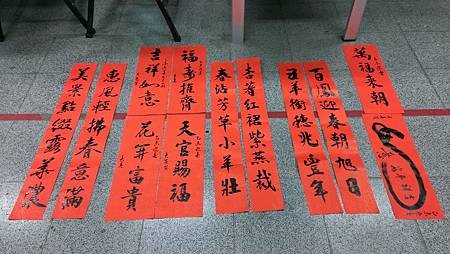 萬福來朝
百鳳迎春朝旭日
五羊銜穗兆豐年
杏著紅裙紫燕裁
春沾芳草小羊壯
福壽齊
天官賜福
吉祥如意
花開富貴
惠風輕拂春意滿
美景點綴露華濃